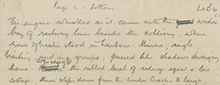 Page 1 - bottom
The engine whistled as it came into the wide
bay of railway lines beside the colliery, where
rows of trucks stood in harbour. Miners, single,
trailing and in groups, passed like shadows diverging
home. the ribbed level of sidings squat a low
cottage three steps down from the cinder track. A large